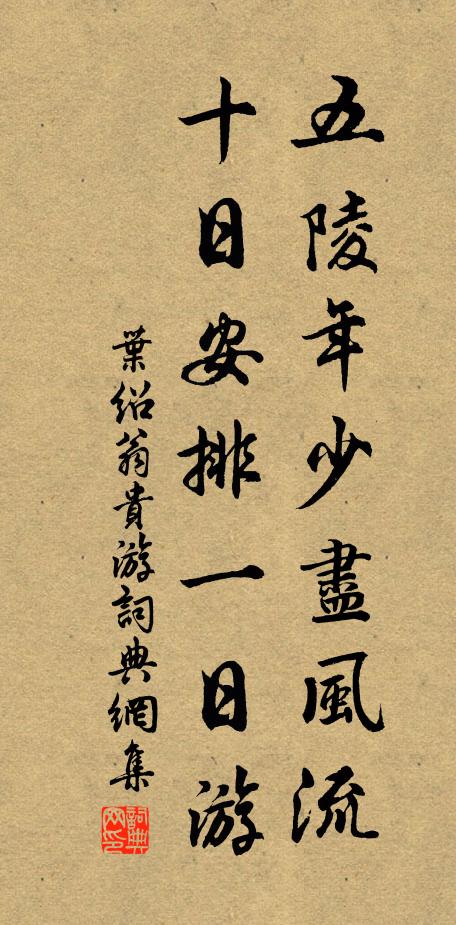 五陵年少盡風流
十日安排一日游
葉紹翁貴游詞典網集
詞典网印